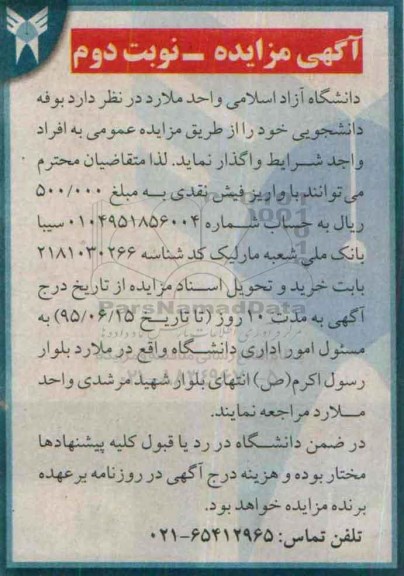 آگهی مزایده ـ نوبت دوم
دانشگاه آزاد اسلامی واحد ملارد در نظر دارد بوفه
دانشجویی خود را از طریق مزایده عمومی به افراد
واجد شرایط واگذار نماید. لذا متقاضیان محترم
می‌توانند با واریز فیش نقدی به مبلغ ۵۰۰/۰۰۰
ریال به حساب شماره ۰۱۰۴۹۵۱۸۵۶۰۰۴ سیبا
بانک ملی شعبه مارلیک کد شناسه ۲۱۸۱۰۳۰۲۶۶
بابت خرید و تحویل اسناد مزایده از تاریخ درج
ParsNamadData
آگهی به مدت ۱۰ روز (تا تاریخ ۹۵/۰۶/۱۵) به
مسئول امور اداری دانشگاه واقع در ملارد بلوار
رسول اکرم(ص) انتهای بلوار شهید مرشدی واحد
ملارد مراجعه نمایند.
در ضمن دانشگاه در رد یا قبول کلیه پیشنهادها
مختار بوده و هزینه درج آگهی در روزنامه برعهده
برنده مزایده خواهد بود.
تلفن تماس: ۶۵۴۱۲۹۶۵-۰۲۱